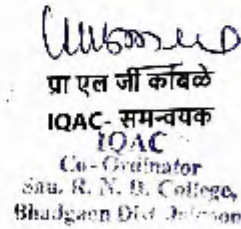 प्रा एल जी कांबळे
IQAC- समन्वयक
IQAC
Co-Ordinator
Sau. R. N. D. College,
Bhadgaon Dist Jalgaon